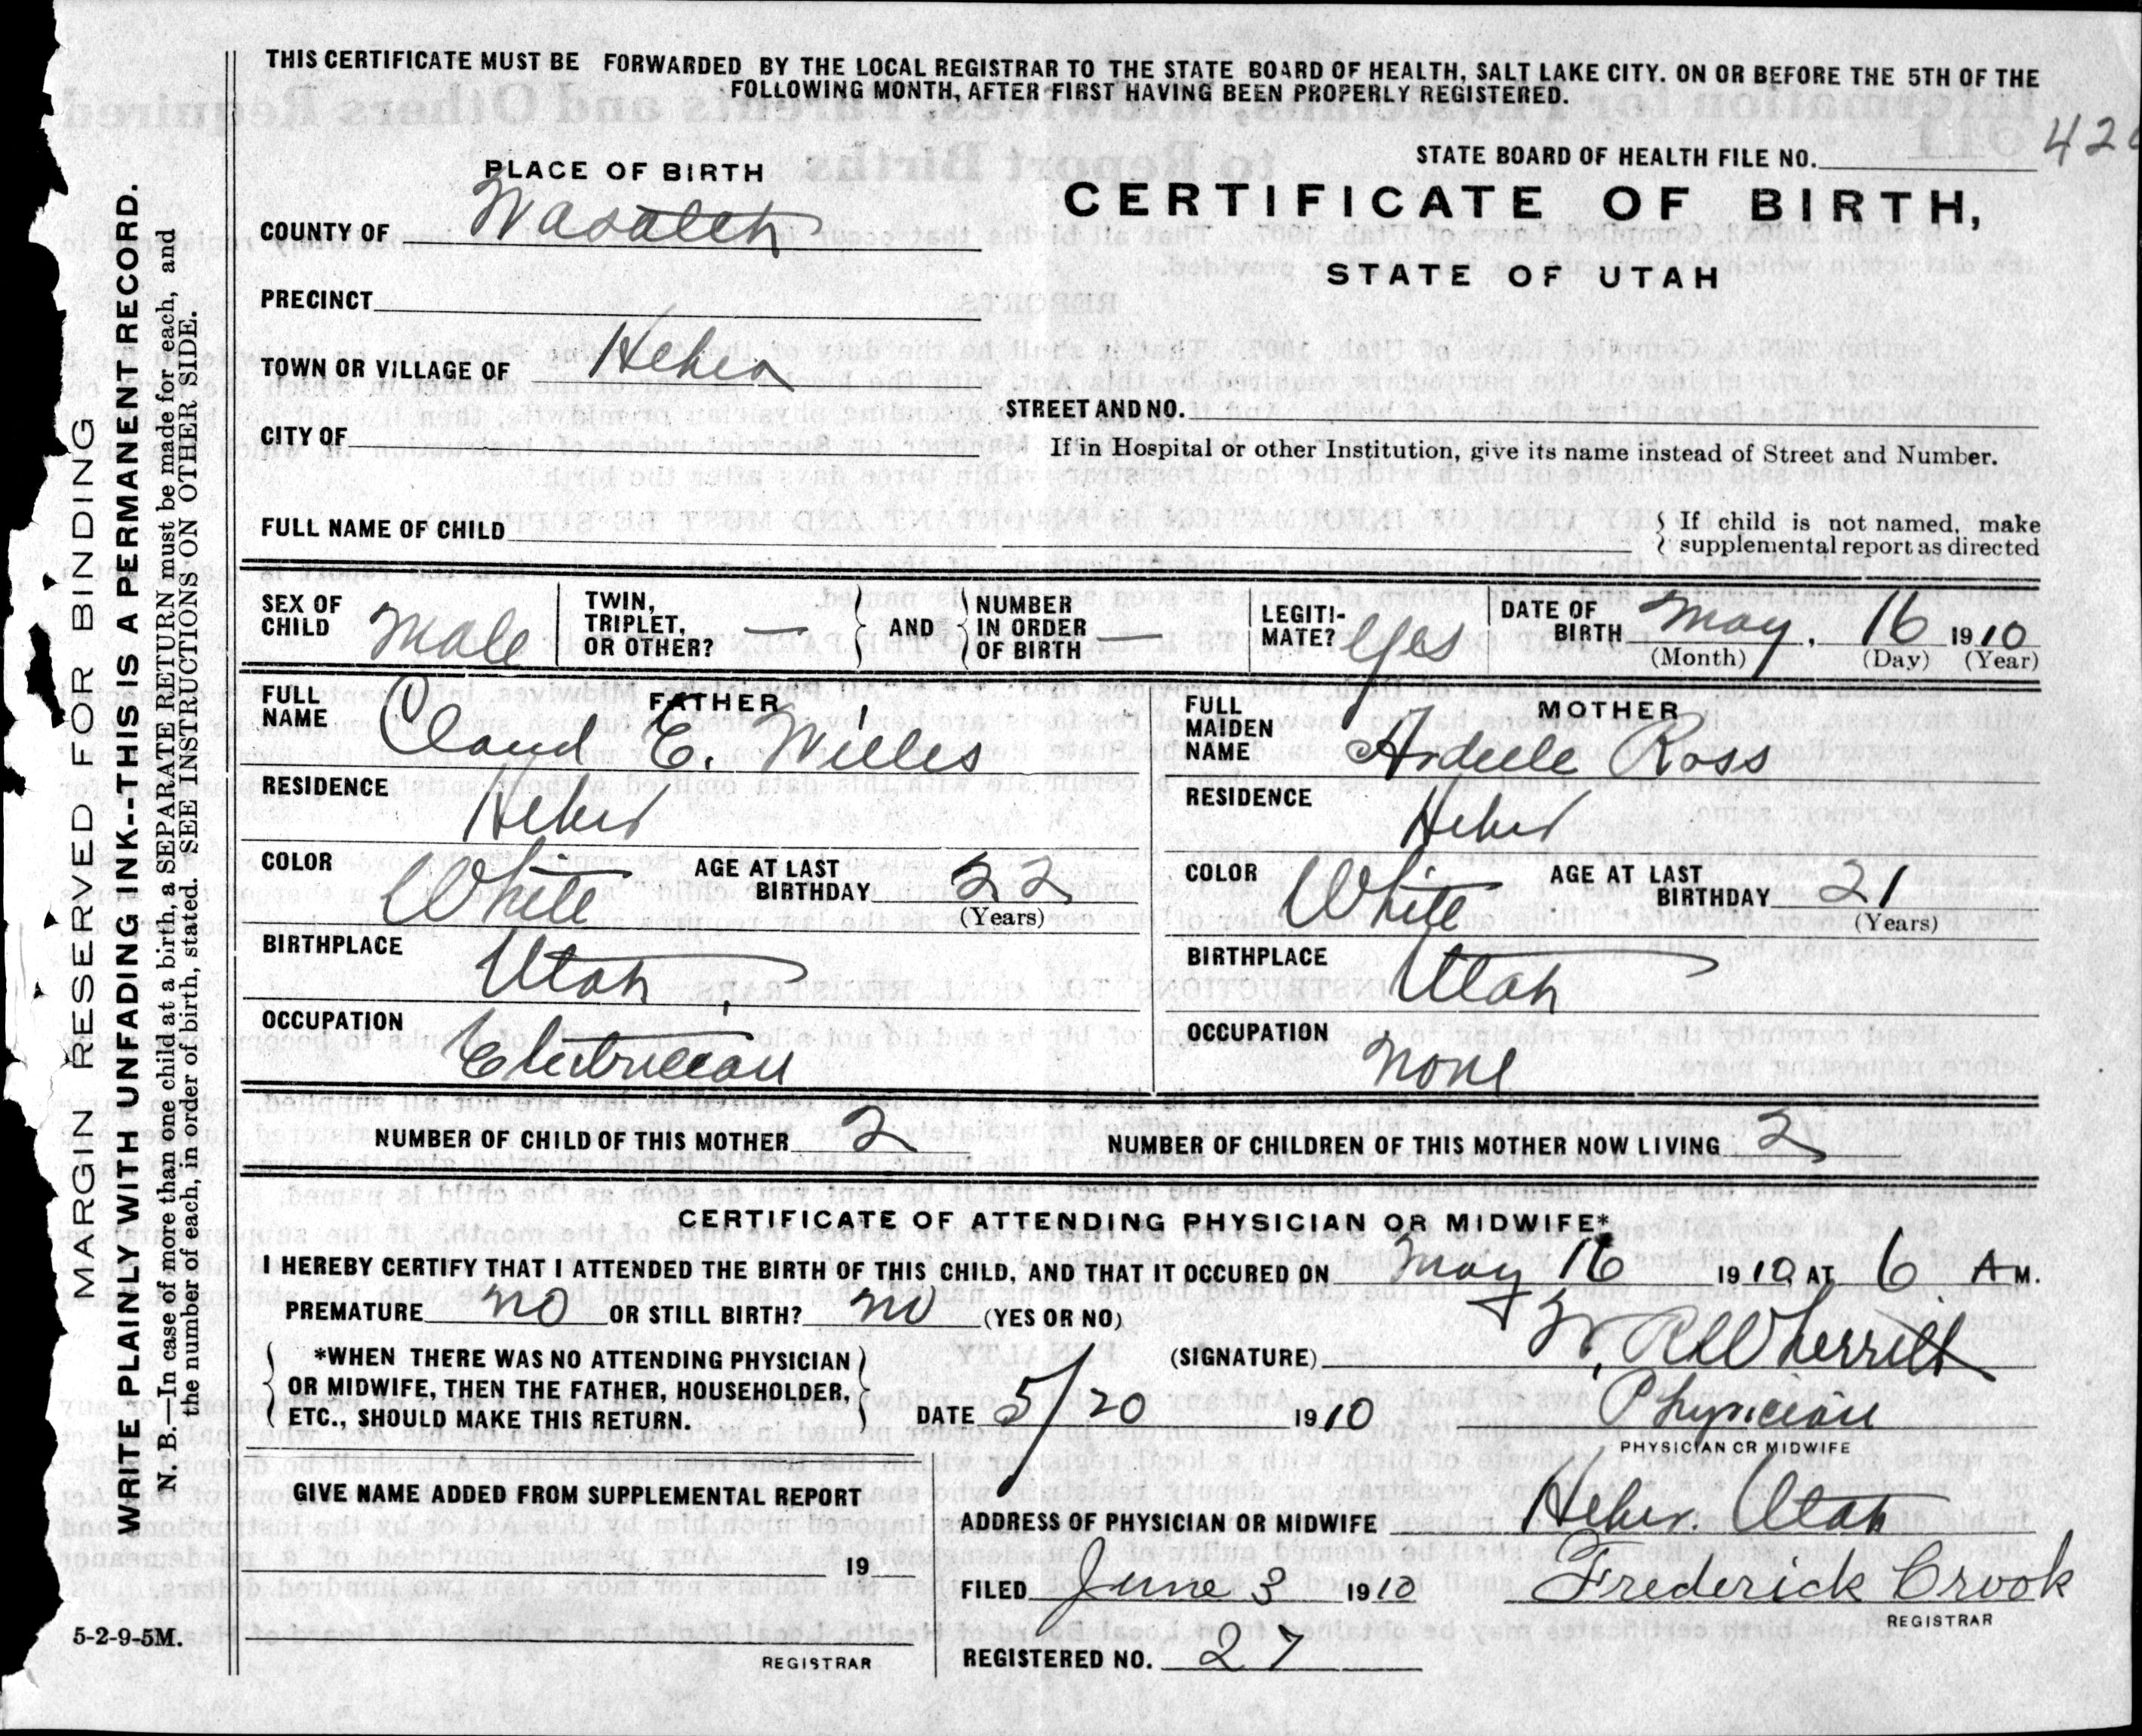 THIS CERTIFICATE MUST BE FORWARDED BY THE LOCAL REGISTRAR TO THE STATE BOARD OF HEALTH, SALT LAKE CITY. ON OR BEFORE THE 5TH OF THE
FOLLOWING MONTH, AFTER FIRST HAVING BEEN PROPERLY REGISTERED.
STATE BOARD OF HEALTH FILE NO. 42
PLACE OF BIRTH
CERTIFICATE OF BIRTH,
STATE OF UTAH
COUNTY OF Wasatch
PRECINCT
TOWN OR VILLAGE OF Heber
STREET AND NO.
CITY OF
If in Hospital or other Institution, give its name instead of Street and Number.
FULL NAME OF CHILD
{ If child is not named, make
supplemental report as directed
SEX OF CHILD Male
TWIN, TRIPLET, OR OTHER? —
} AND {
NUMBER IN ORDER OF BIRTH —
LEGITIMATE? Yes
DATE OF BIRTH May, 16 1910
(Month) (Day) (Year)
FATHER
FULL NAME Claud E. Willes
RESIDENCE Heber
COLOR White AGE AT LAST BIRTHDAY 22
(Years)
BIRTHPLACE Utah
OCCUPATION Electrician
MOTHER
FULL MAIDEN NAME Ross
RESIDENCE Heber
COLOR White AGE AT LAST BIRTHDAY 21
(Years)
BIRTHPLACE Utah
OCCUPATION None
NUMBER OF CHILD OF THIS MOTHER 2 NUMBER OF CHILDREN OF THIS MOTHER NOW LIVING 2
CERTIFICATE OF ATTENDING PHYSICIAN OR MIDWIFE*
I HEREBY CERTIFY THAT I ATTENDED THE BIRTH OF THIS CHILD, AND THAT IT OCCURED ON May 16 1910 AT 6 A M.
PREMATURE no OR STILL BIRTH? no (YES OR NO)
{ *WHEN THERE WAS NO ATTENDING PHYSICIAN
OR MIDWIFE, THEN THE FATHER, HOUSEHOLDER,
ETC., SHOULD MAKE THIS RETURN. }
(SIGNATURE) Wherritt
DATE 5/20 1910 Physician
PHYSICIAN OR MIDWIFE
GIVE NAME ADDED FROM SUPPLEMENTAL REPORT
19
REGISTRAR
ADDRESS OF PHYSICIAN OR MIDWIFE Heber. Utah
FILED June 3 1910 Frederick Crook
REGISTRAR
REGISTERED NO. 27
5-2-9-5M.
MARGIN RESERVED FOR BINDING
WRITE PLAINLY WITH UNFADING INK--THIS IS A PERMANENT RECORD.
N. B.—In case of more than one child at a birth, a SEPARATE RETURN must be made for each, and
the number of each, in order of birth, stated. SEE INSTRUCTIONS ON OTHER SIDE.